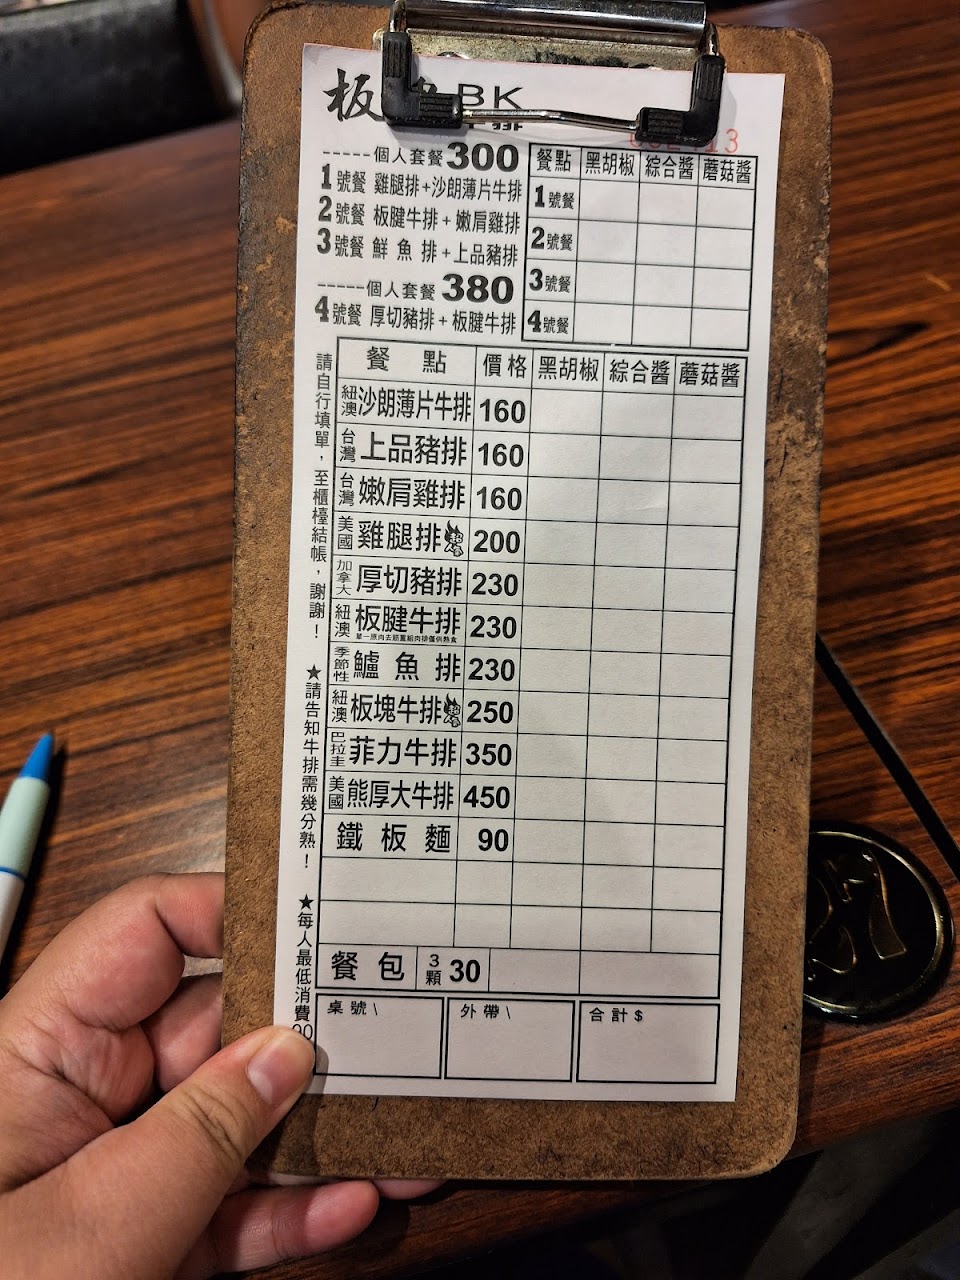 板 BK
13
個人套餐300
1號餐 雞腿排+沙朗薄片牛排
2號餐 板腱牛排+嫩肩雞排
3號餐 鮮魚排+上品豬排
個人套餐380
4號餐 厚切豬排+板腱牛排
餐點 黑胡椒 綜合醬 蘑菇醬
1號餐
2號餐
3號餐
4號餐
餐點 價格 黑胡椒 綜合醬 蘑菇醬
紐澳 沙朗薄片牛排 160
台灣 上品豬排 160
台灣 嫩肩雞排 160
美國 雞腿排 200
加拿大 厚切豬排 230
紐澳 板腱牛排 230
季節性 鱸魚排 230
紐澳 板塊牛排 250
巴拉圭 菲力牛排 350
美國 熊厚大牛排 450
鐵板麵 90
餐包 3顆 30
桌號\ 外帶\ 合計$
請自行填單，至櫃檯結帳，謝謝！
★請告知牛排需幾分熟！
★每人最低消費